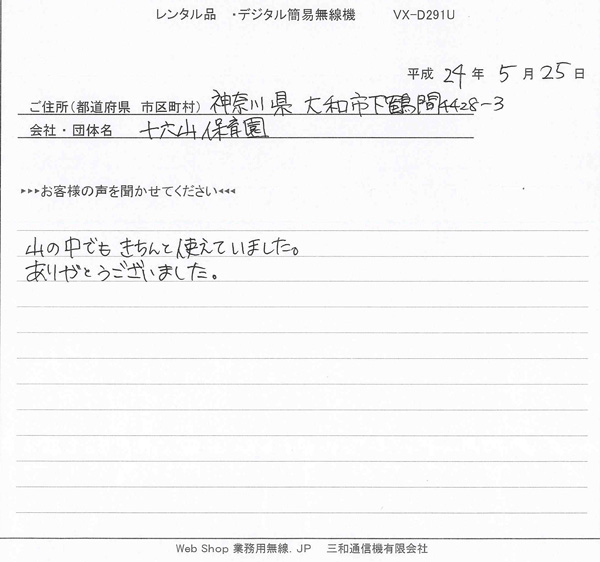 レンタル品 ・デジタル簡易無線機 VX-D291U
平成 24 年 5 月 25 日
ご住所(都道府県 市区町村) 神奈川県 大和市下鶴間4428-3
会社・団体名 十六山保育園
▸▸▸お客様の声を聞かせてください◂◂◂
山の中でも きちんと使えていました。
ありがとうございました。
Web Shop 業務用無線.JP 三和通信機有限会社